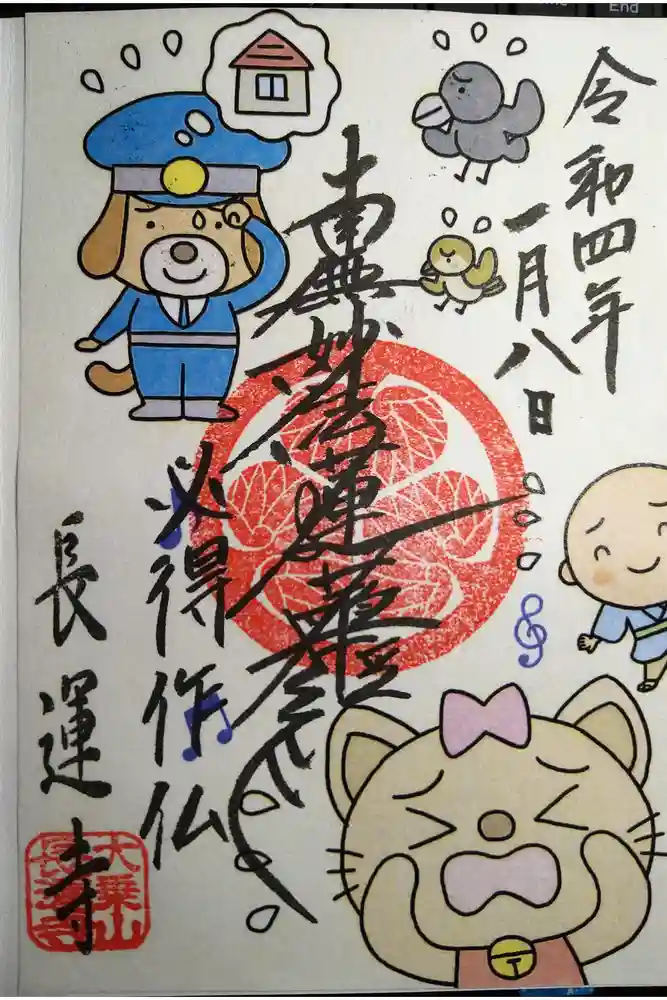 End
令和四年
一月八日
南無妙法蓮華経
必得作仏
長運寺
大乗山
長運寺